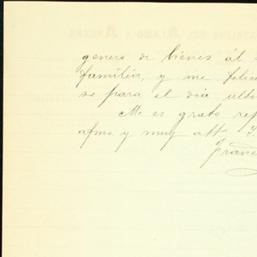 genero de bienes ál
familia, y me felic
se para el dia ulti
Me es grato rep
afmo y muy att. S.
Franc